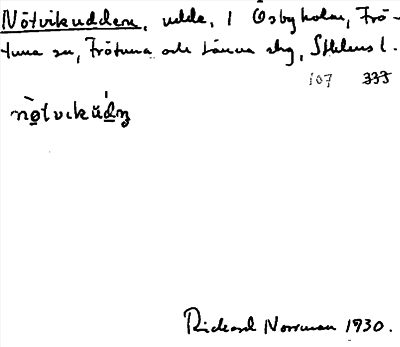 Nötvikudden, udde, i Osbyholm, Frö-
tuna sn, Frötuna och Länna skg, Sthlms l.
107 333
nø̀tvikúdn̥
Rickard Norrman 1930.